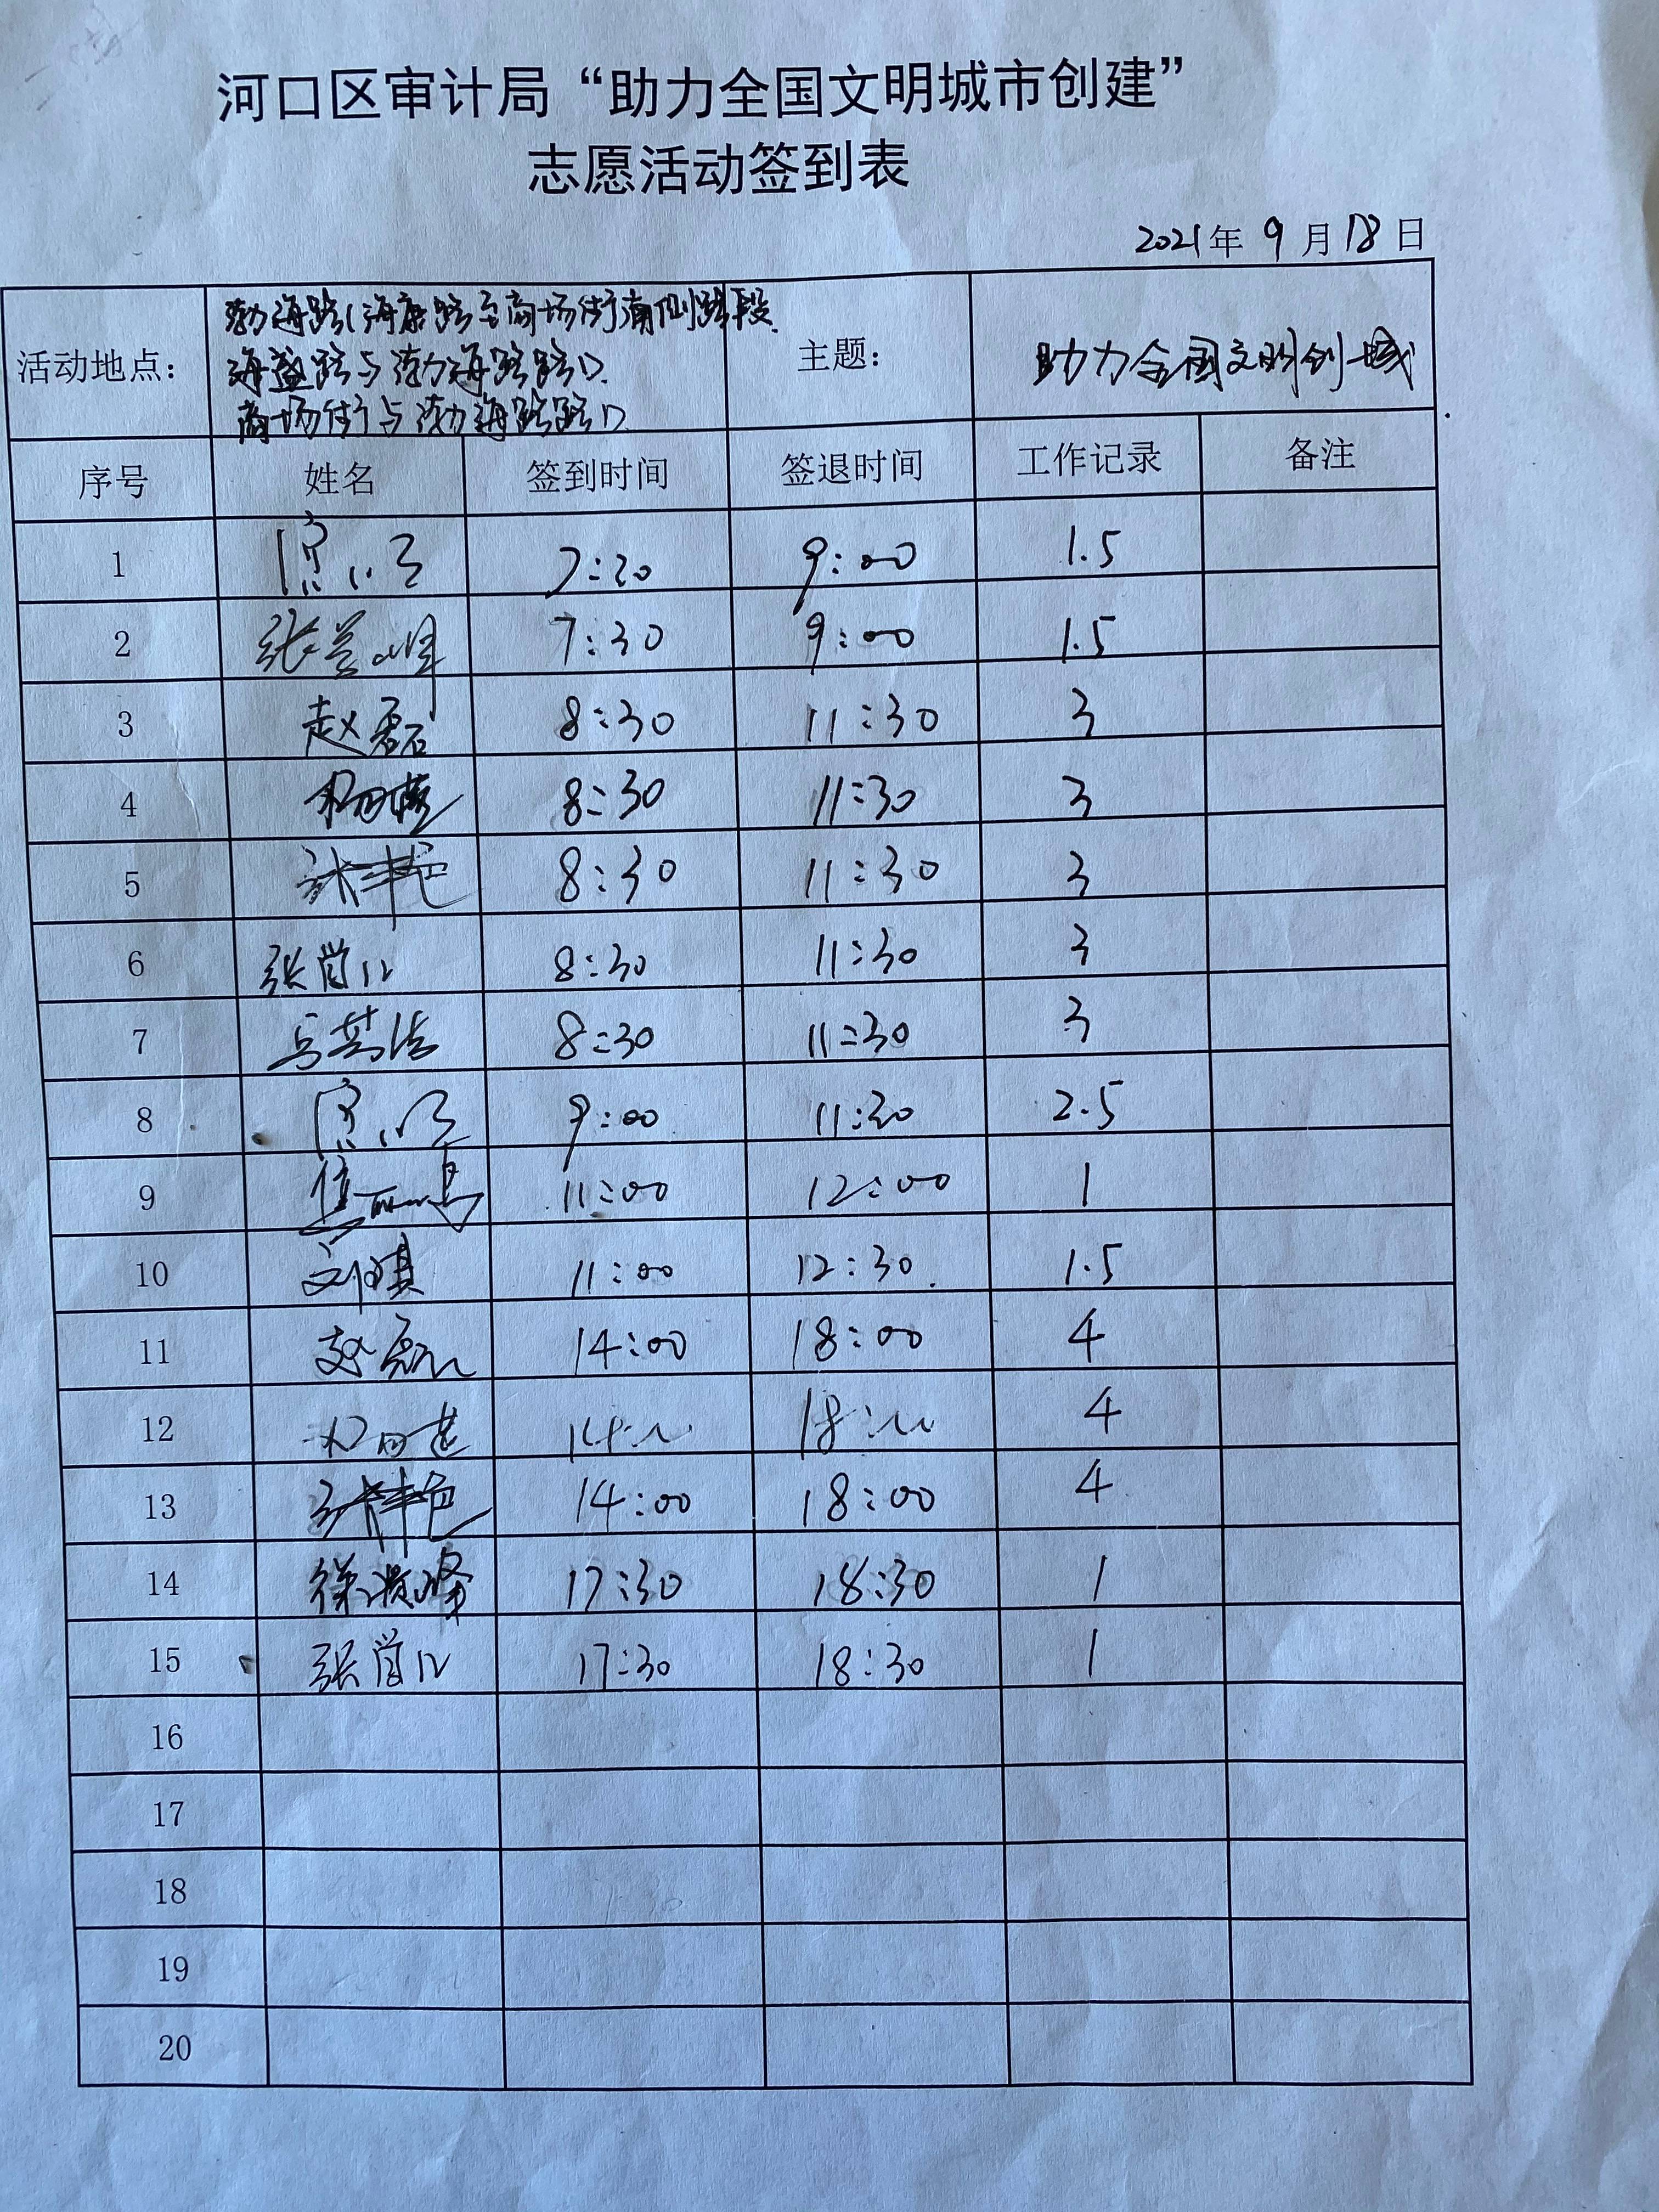 河口区审计局“助力全国文明城市创建”
志愿活动签到表
2021年 9 月 18 日
活动地点: 渤海路(海康路至商场街南侧路段 主题: 助力全国文明创城
海盛路与渤海路路口
商场街与渤海路路口
序号 姓名 签到时间 签退时间 工作记录 备注
1 7:30 9:00 1.5
2 7:30 9:00 1.5
3 赵磊 8:30 11:30 3
4 8:30 11:30 3
5 8:30 11:30 3
6 8:30 11:30 3
7 8:30 11:30 3
8 9:00 11:30 2.5
9 11:00 12:00 1
10 刘琪 11:00 12:30 1.5
11 赵磊 14:00 18:00 4
12 14:00 18:00 4
13 14:00 18:00 4
14 17:30 18:30 1
15 17:30 18:30 1
16
17
18
19
20